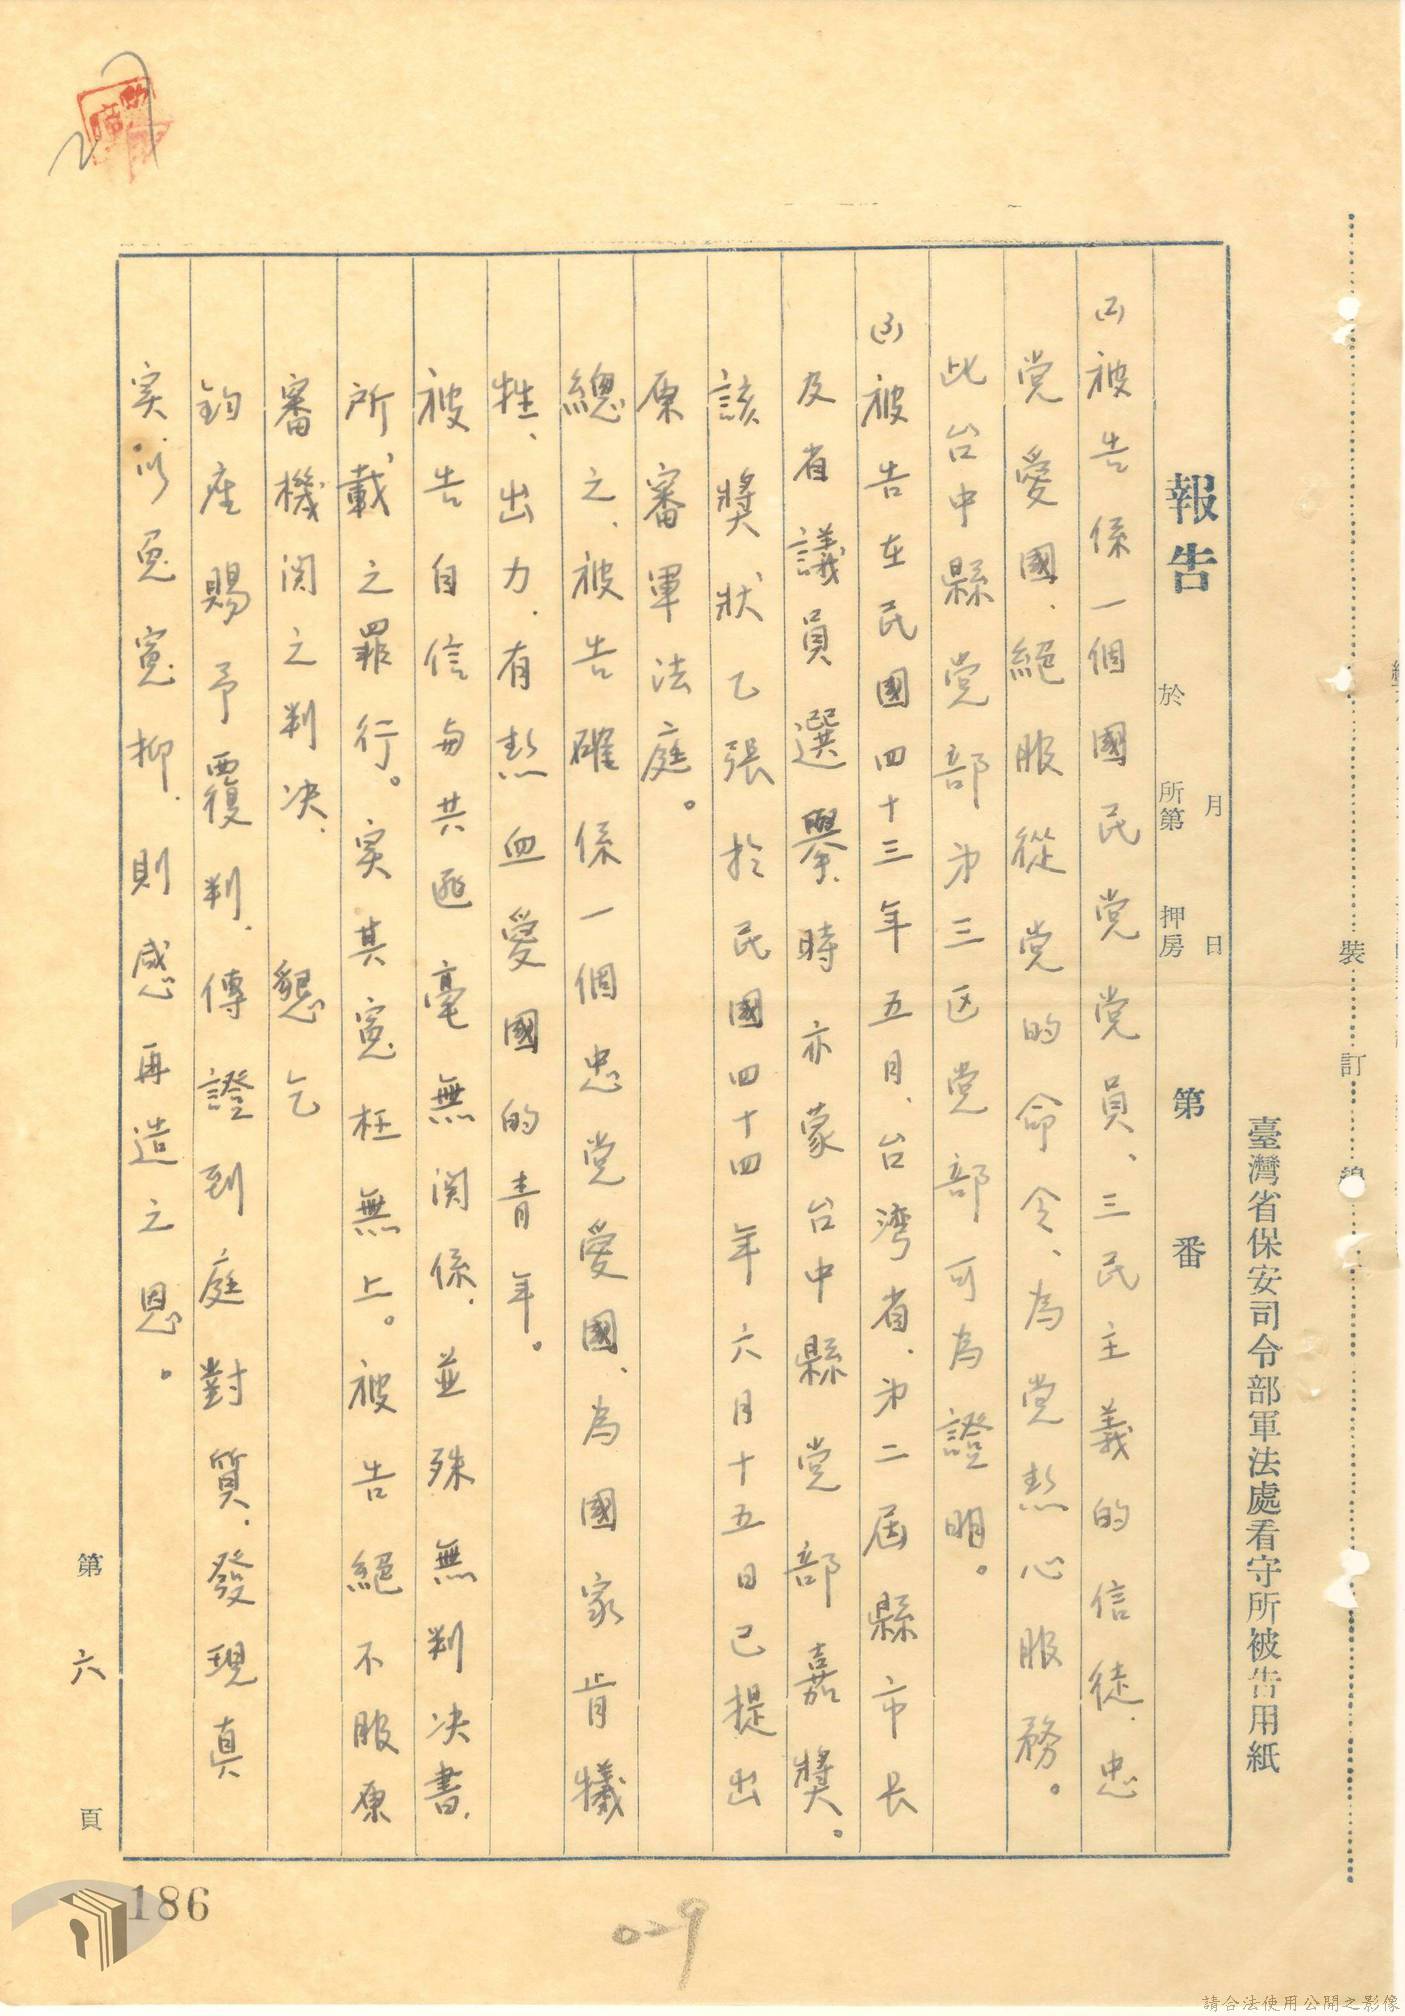 臺灣省保安司令部軍法處看守所被告用紙
裝 訂 線
報告 於 所第 押房 月 日 第 番
(2)被告係一個國民党党員、三民主義的信徒.忠
党愛國、絕服從党的命令、為党热心服務。
此台中縣党部第三区党部可為證明。
(3)被告在民國四十三年五月、台湾省.第二屆縣市長
及省議員選舉.時亦蒙台中縣党部嘉獎。
該獎狀乙張於民國四十四年六月十五日已提出
原審軍法庭。
總之、被告確係一個忠党愛國、為國家肯犧
牲、出力.有热血愛國的青年。
被告自信與共匪毫無関係.並殊無判决書.
所載之罪行。实其冤枉無上。被告絕不服原
審機関之判决. 懇乞
鈞座賜予覆判.傳證到庭對質.發現真
实.以免冤抑.則感再造之恩。
第六頁
186
029
請合法使用公開之影像